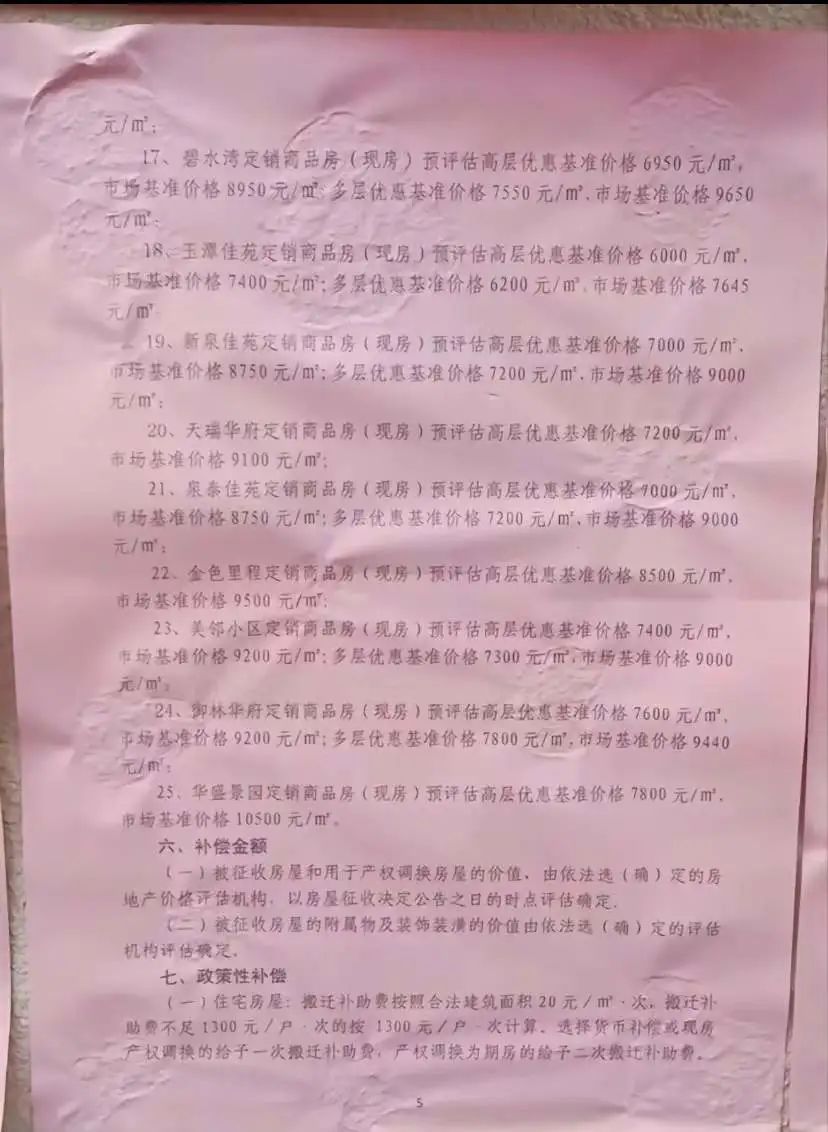 元/㎡；
17、碧水湾定销商品房（现房）预评估高层优惠基准价格6950元/㎡，
市场基准价格8950元/㎡；多层优惠基准价格7550元/㎡，市场基准价格9650
元/㎡；
18、玉潭佳苑定销商品房（现房）预评估高层优惠基准价格6000元/㎡，
市场基准价格7400元/㎡；多层优惠基准价格6200元/㎡，市场基准价格7645
元/㎡
19、新泉佳苑定销商品房（现房）预评估高层优惠基准价格7000元/㎡，
市场基准价格8750元/㎡；多层优惠基准价格7200元/㎡，市场基准价格9000
元/㎡；
20、天瑞华府定销商品房（现房）预评估高层优惠基准价格7200元/㎡，
市场基准价格9100元/㎡；
21、泉泰佳苑定销商品房（现房）预评估高层优惠基准价格7000元/㎡，
市场基准价格8750元/㎡；多层优惠基准价格7200元/㎡，市场基准价格9000
元/㎡；
22、金色里程定销商品房（现房）预评估高层优惠基准价格8500元/㎡，
市场基准价格9500元/㎡；
23、美邻小区定销商品房（现房）预评估高层优惠基准价格7400元/㎡，
市场基准价格9200元/㎡；多层优惠基准价格7300元/㎡，市场基准价格9000
元/㎡；
24、御林华府定销商品房（现房）预评估高层优惠基准价格7600元/㎡，
市场基准价格9200元/㎡；多层优惠基准价格7800元/㎡，市场基准价格9440
元/㎡；
25、华盛景园定销商品房（现房）预评估高层优惠基准价格7800元/㎡，
市场基准价格10500元/㎡。
六、补偿金额
（一）被征收房屋和用于产权调换房屋的价值，由依法选（确）定的房
地产价格评估机构，以房屋征收决定公告之日的时点评估确定。
（二）被征收房屋的附属物及装饰装潢的价值由依法选（确）定的评估
机构评估确定。
七、政策性补偿
（一）住宅房屋：搬迁补助费按照合法建筑面积20元/㎡·次，搬迁补
助费不足1300元/户·次的按1300元/户·次计算。选择货币补偿或现房
产权调换的给予一次搬迁补助费，产权调换为期房的给予二次搬迁补助费。
5